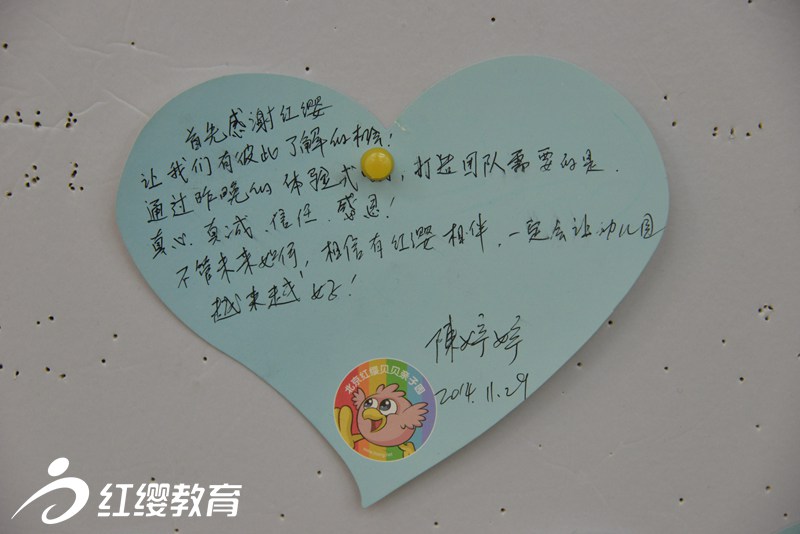 首先感谢红缨
让我们有彼此了解的机会!
通过昨晚的体验式，打造团队需要的是.
真心、真诚、信任、感恩!
不管未来如何，相信有红缨相伴，一定会让幼儿园
越来越好!
陳婷婷
2014.11.29
北京红缨贝贝亲子园
红缨教育